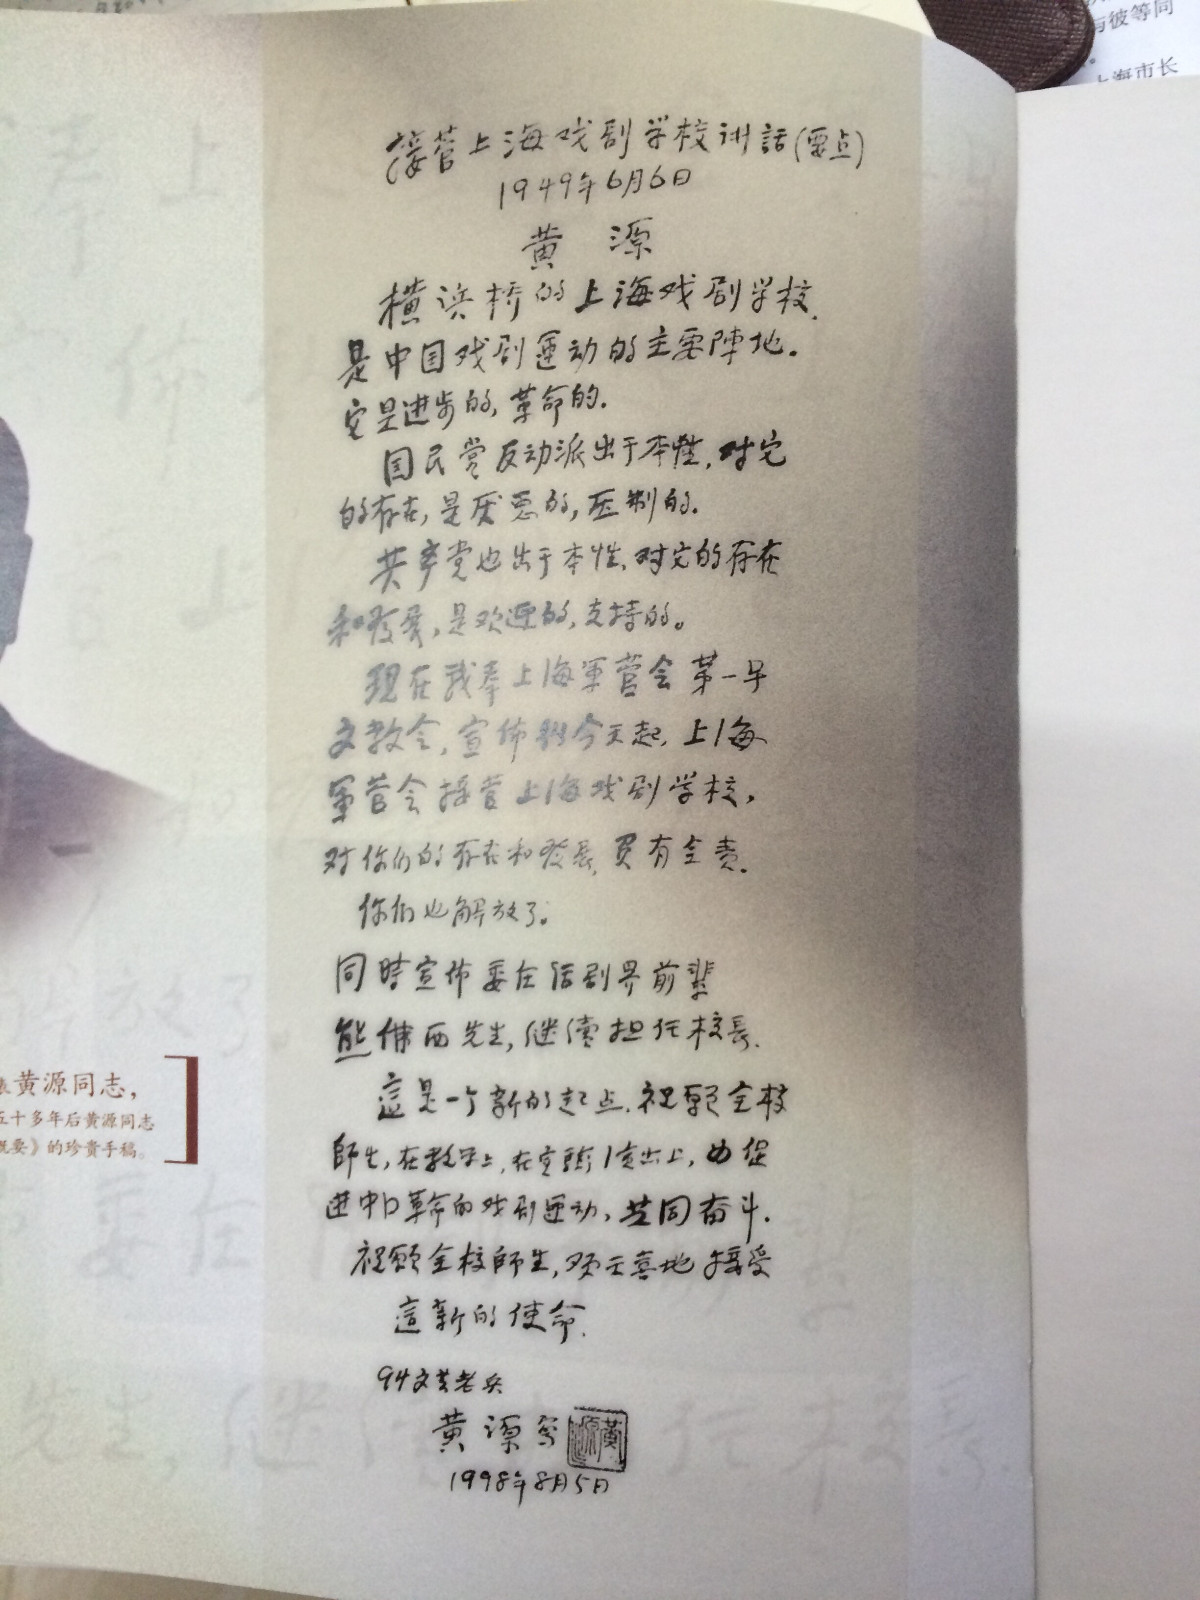 与彼等同
上海市长
接管上海戏剧学校讲話(要点)
1949年6月6日
黄 源
横浜桥的上海戏剧学校.
是中国戏剧運动的主要陣地。
它是进步的,革命的.
国民党反动派出于本性,对它
的存在,是厌恶的,压制的.
共产党也出于本性,对它的存在
和發展,是欢迎的,支持的。
现在我奉上海軍管会第一号
文教令,宣佈 今天起,上海
軍管会接管上海戏剧学校,
对你们的存在和發展,負有全責.
你们也解放了。
同時宣佈委任话剧界前輩
熊佛西先生,继續担任校長.
這是一个新的起点.祝愿全校
師生,在教学上,在实际演出上,为促
进中国革命的戏剧運动,共同奋斗.
祝願全校師生,欢天喜地接受
這新的使命.
94文艺老兵
黄源写
黄源
1998年8月5日
黄源同志,
五十多年后黄源同志
概要》的珍贵手稿。